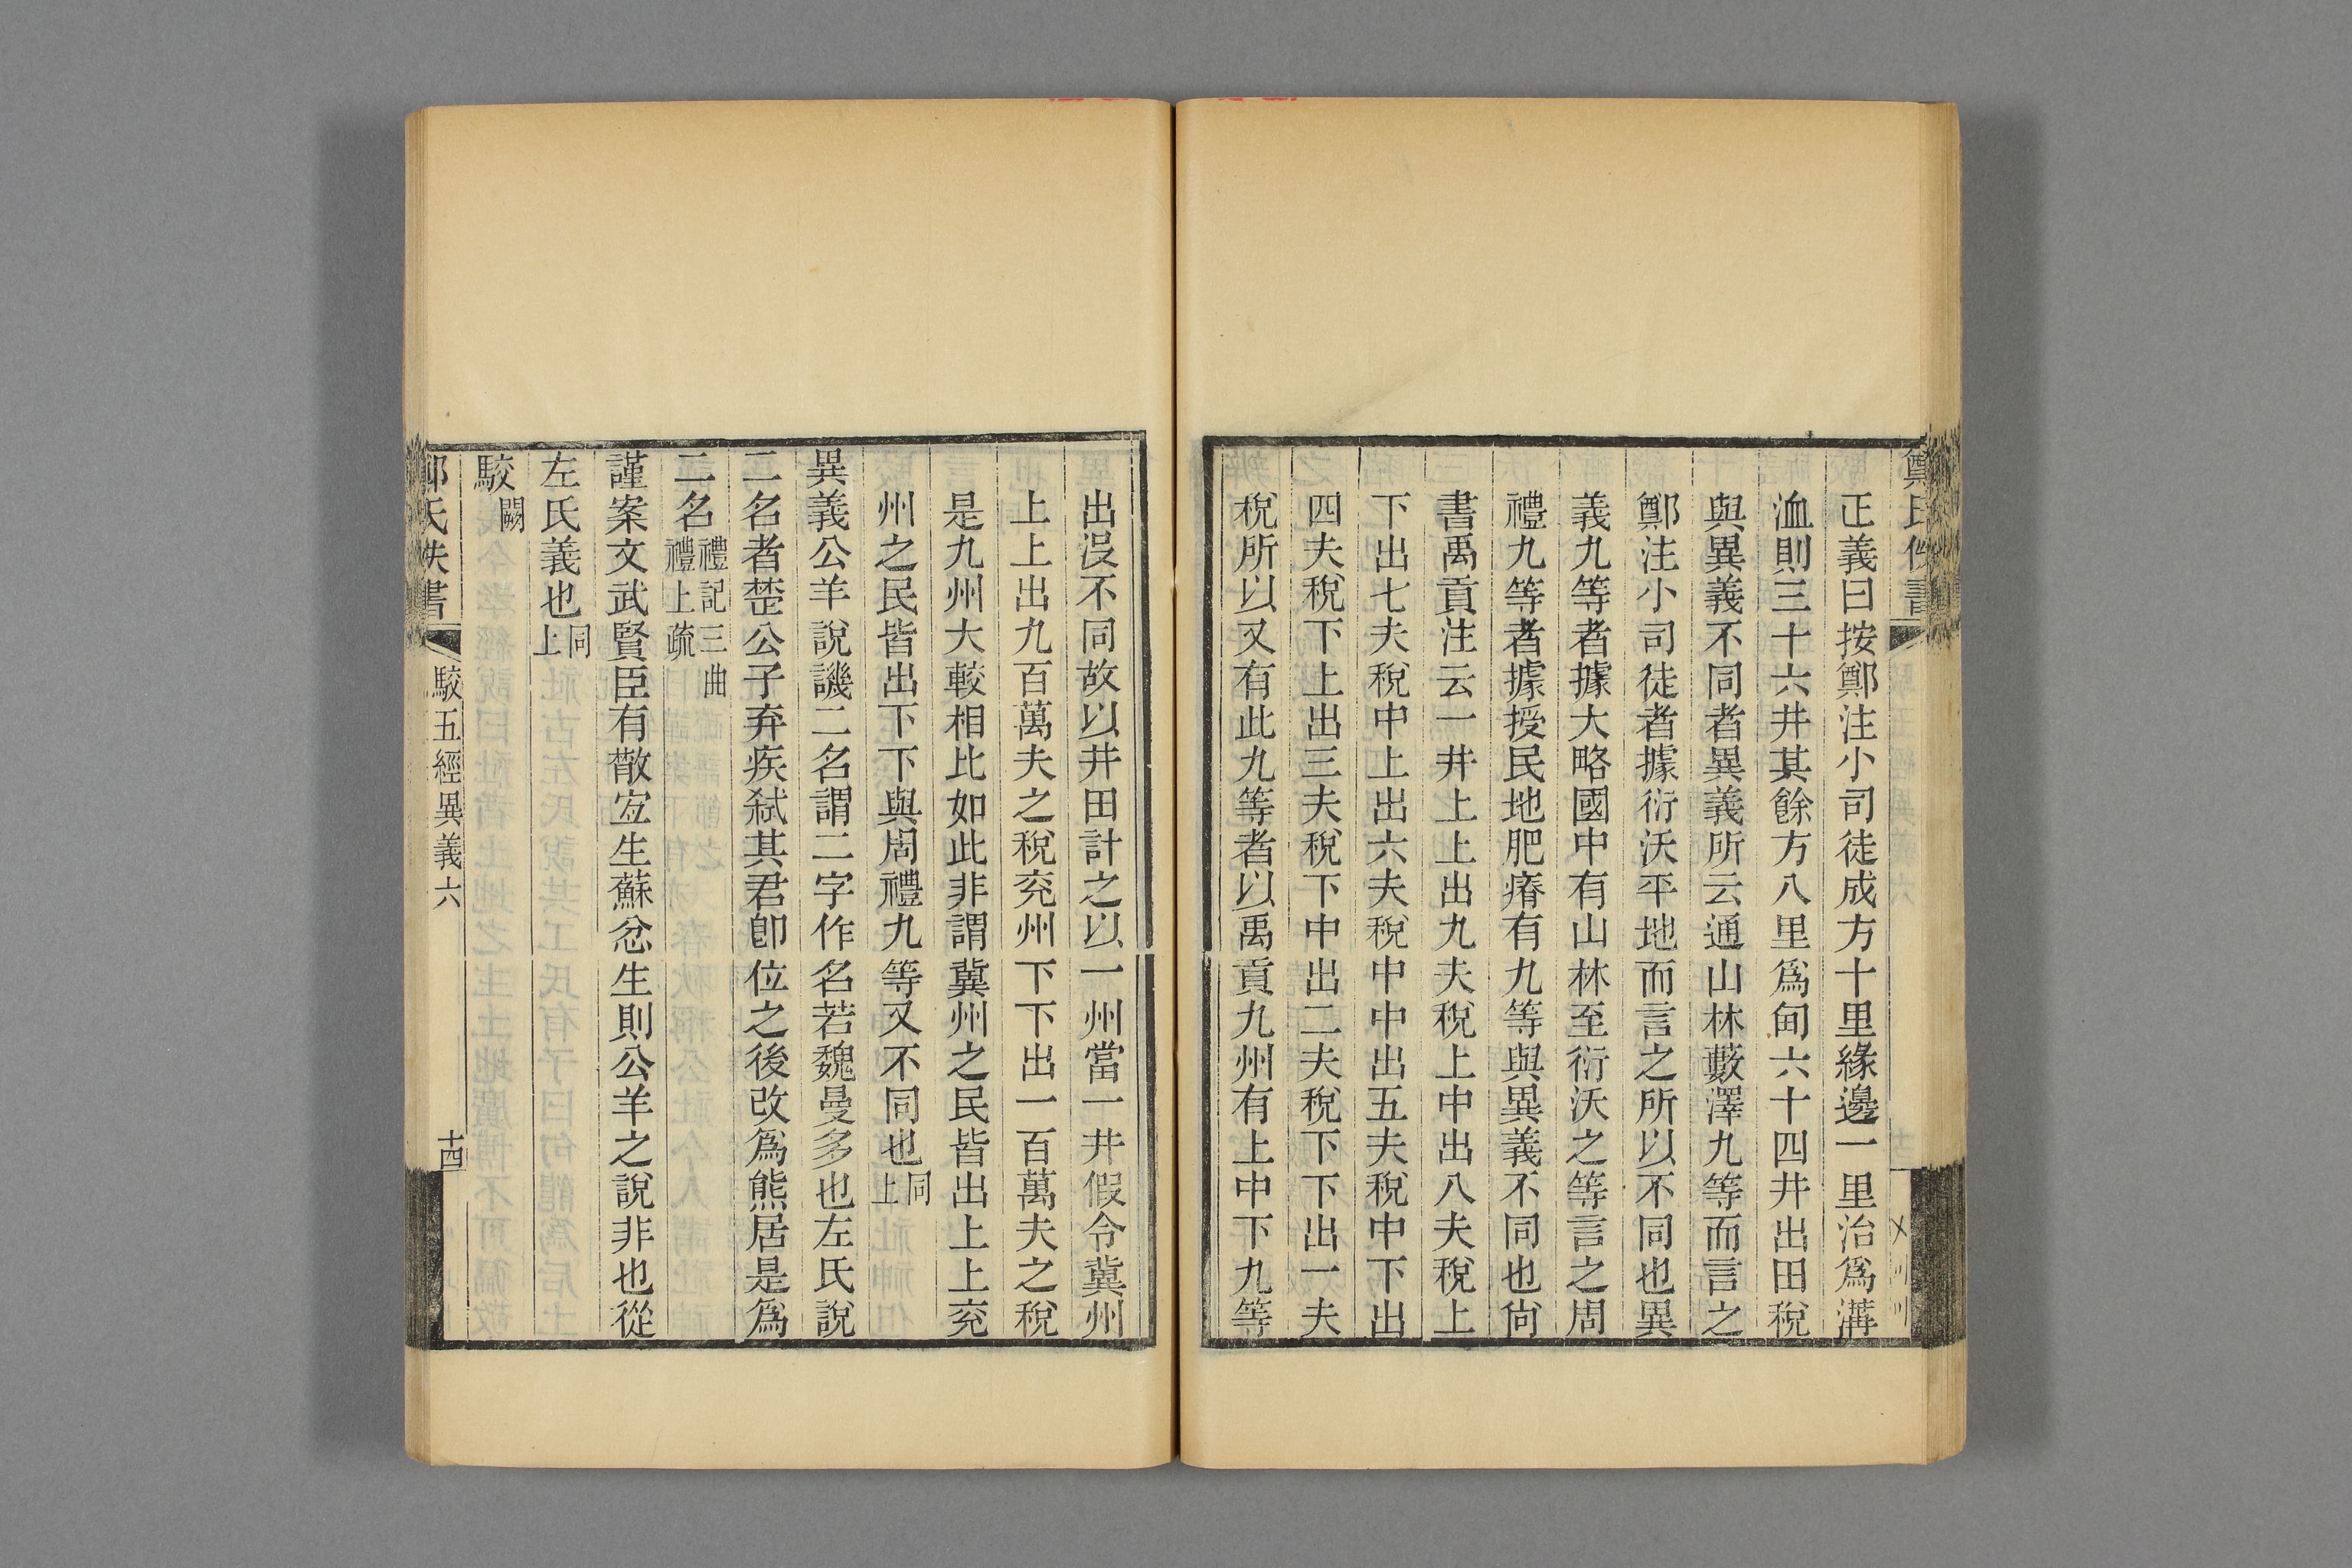 正義曰按鄭注小司徒成方十里緣邊一里治爲溝
洫則三十六井其餘方八里爲甸六十四井出田稅
與異義不同者異義所云通山林藪澤九等而言之
鄭注小司徒者據衍沃平地而言之所以不同也異
義九等者據大略國中有山林至衍沃之等言之周
禮九等者據授民地肥瘠有九等與異義不同也尙
書禹貢注云一井上上出九夫稅上中出八夫稅上
下出七夫稅中上出六夫稅中中出五夫稅中下出
四夫稅下上出三夫稅下中出二夫稅下下出一夫
稅所以又有此九等者以禹貢九州有上中下九等
出沒不同故以井田計之以一州當一井假令冀州
上上出九百萬夫之稅兗州下下出一百萬夫之稅
是九州大較相比如此非謂冀州之民皆出上上兗
州之民皆出下下與周禮九等又不同也同上
異義公羊說譏二名謂二字作名若魏曼多也左氏說
二名者楚公子弃疾弒其君卽位之後改爲熊居是爲
二名禮記三曲禮上疏
謹案文武賢臣有散宜生蘇忿生則公羊之說非也從
左氏義也同上
駮闕
鄭氏佚書 駮五經異義六 十四